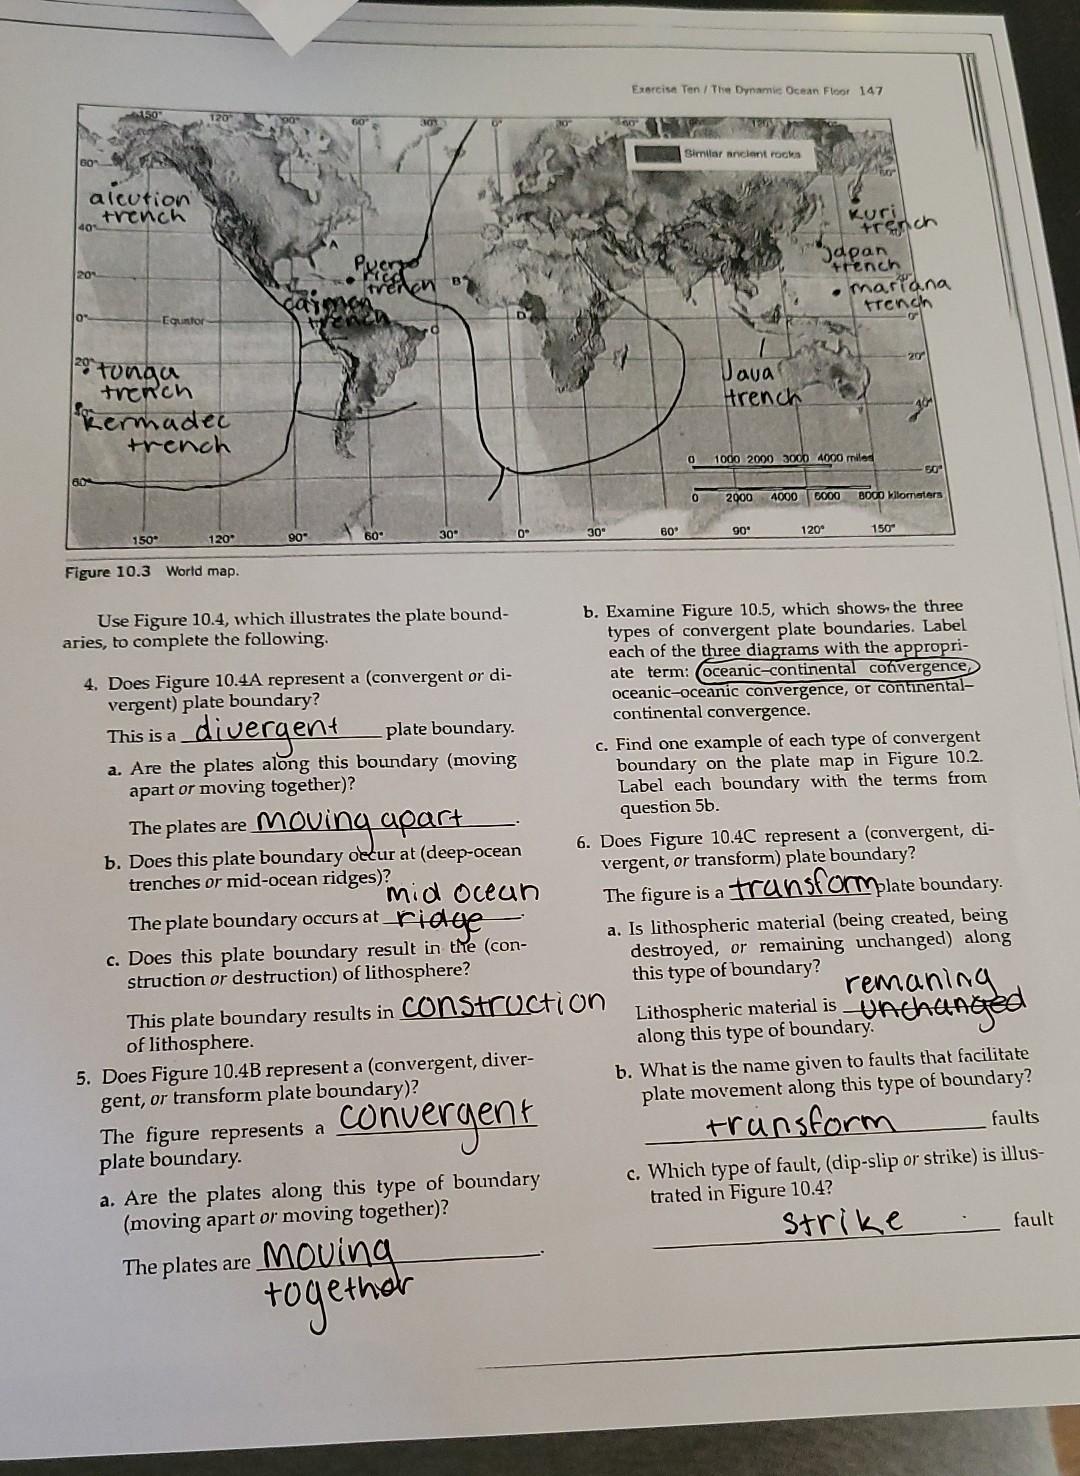 Exercise Ten / The Dynamic Ocean Floor 147
150° 120° 90° 60° 30° 0° 30° 60° 120°
Similar ancient rocks
60°
60°
aleution
trench
40°
Kuri
trench
A
Japan
trench
Puerto
Rico
trench
20°
B
20°
mariana
trench
caiman
trench
0°
Equator
C
D
0°
20°
tonga
trench
20°
Java
trench
Kermadec
trench
40°
0 1000 2000 3000 4000 miles
60°
60°
0 2000 4000 6000 8000 kilometers
150° 120° 90° 60° 30° 0° 30° 60° 90° 120° 150°
Figure 10.3 World map.
Use Figure 10.4, which illustrates the plate bound-
aries, to complete the following.
4. Does Figure 10.4A represent a (convergent or di-
vergent) plate boundary?
This is a divergent plate boundary.
a. Are the plates along this boundary (moving
apart or moving together)?
The plates are moving apart.
b. Does this plate boundary occur at (deep-ocean
trenches or mid-ocean ridges)?
mid ocean
The plate boundary occurs at ridge.
c. Does this plate boundary result in the (con-
struction or destruction) of lithosphere?
This plate boundary results in construction
of lithosphere.
5. Does Figure 10.4B represent a (convergent, diver-
gent, or transform plate boundary)?
The figure represents a convergent
plate boundary.
a. Are the plates along this type of boundary
(moving apart or moving together)?
The plates are moving.
together
b. Examine Figure 10.5, which shows the three
types of convergent plate boundaries. Label
each of the three diagrams with the appropri-
ate term: oceanic–continental convergence,
oceanic–oceanic convergence, or continental–
continental convergence.
c. Find one example of each type of convergent
boundary on the plate map in Figure 10.2.
Label each boundary with the terms from
question 5b.
6. Does Figure 10.4C represent a (convergent, di-
vergent, or transform) plate boundary?
The figure is a transform plate boundary.
a. Is lithospheric material (being created, being
destroyed, or remaining unchanged) along
this type of boundary?
remaning
Lithospheric material is unchanged
along this type of boundary.
b. What is the name given to faults that facilitate
plate movement along this type of boundary?
transform faults
c. Which type of fault, (dip-slip or strike) is illus-
trated in Figure 10.4?
strike fault